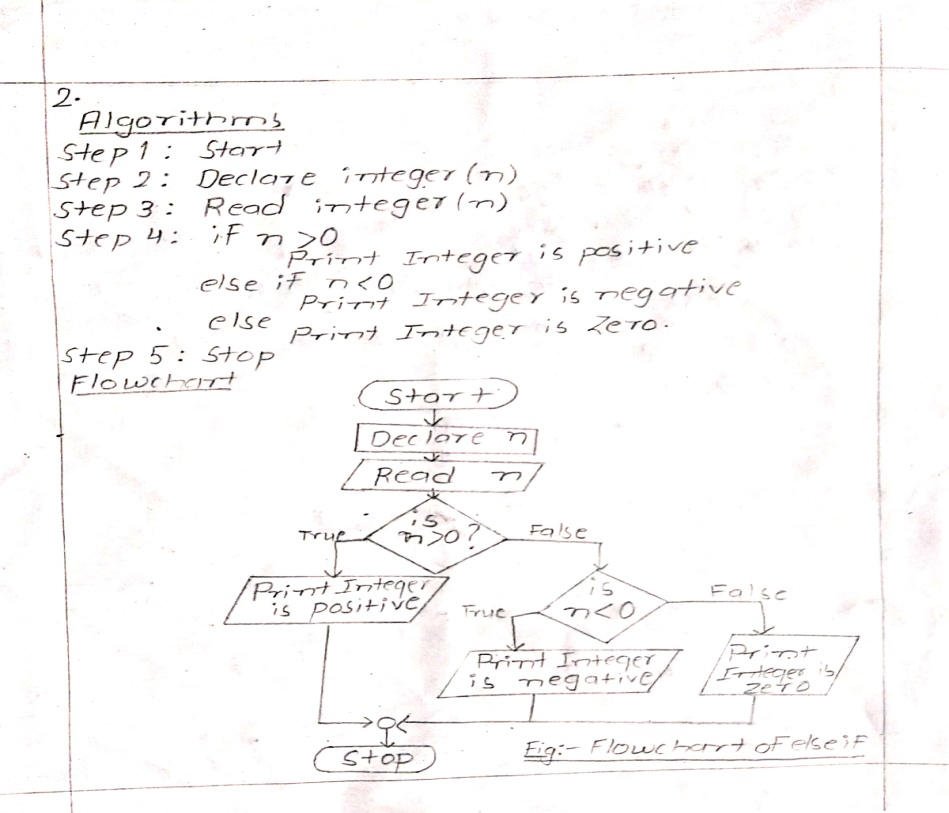 2.
Algorithms
Step 1 : Start
Step 2 : Declare integer (n)
Step 3 : Read integer (n)
Step 4 : if n >0
Print Integer is positive
else if n <0
Print Integer is negative
else
Print Integer is Zero.
Step 5 : Stop
Flowchart
Start
Declare n
Read n
is
n>0?
True
False
Print Integer
is positive
is
n<0
True
False
Print Integer
is negative
Print
Integer is
zero
Stop
Fig:- Flowchart of else if